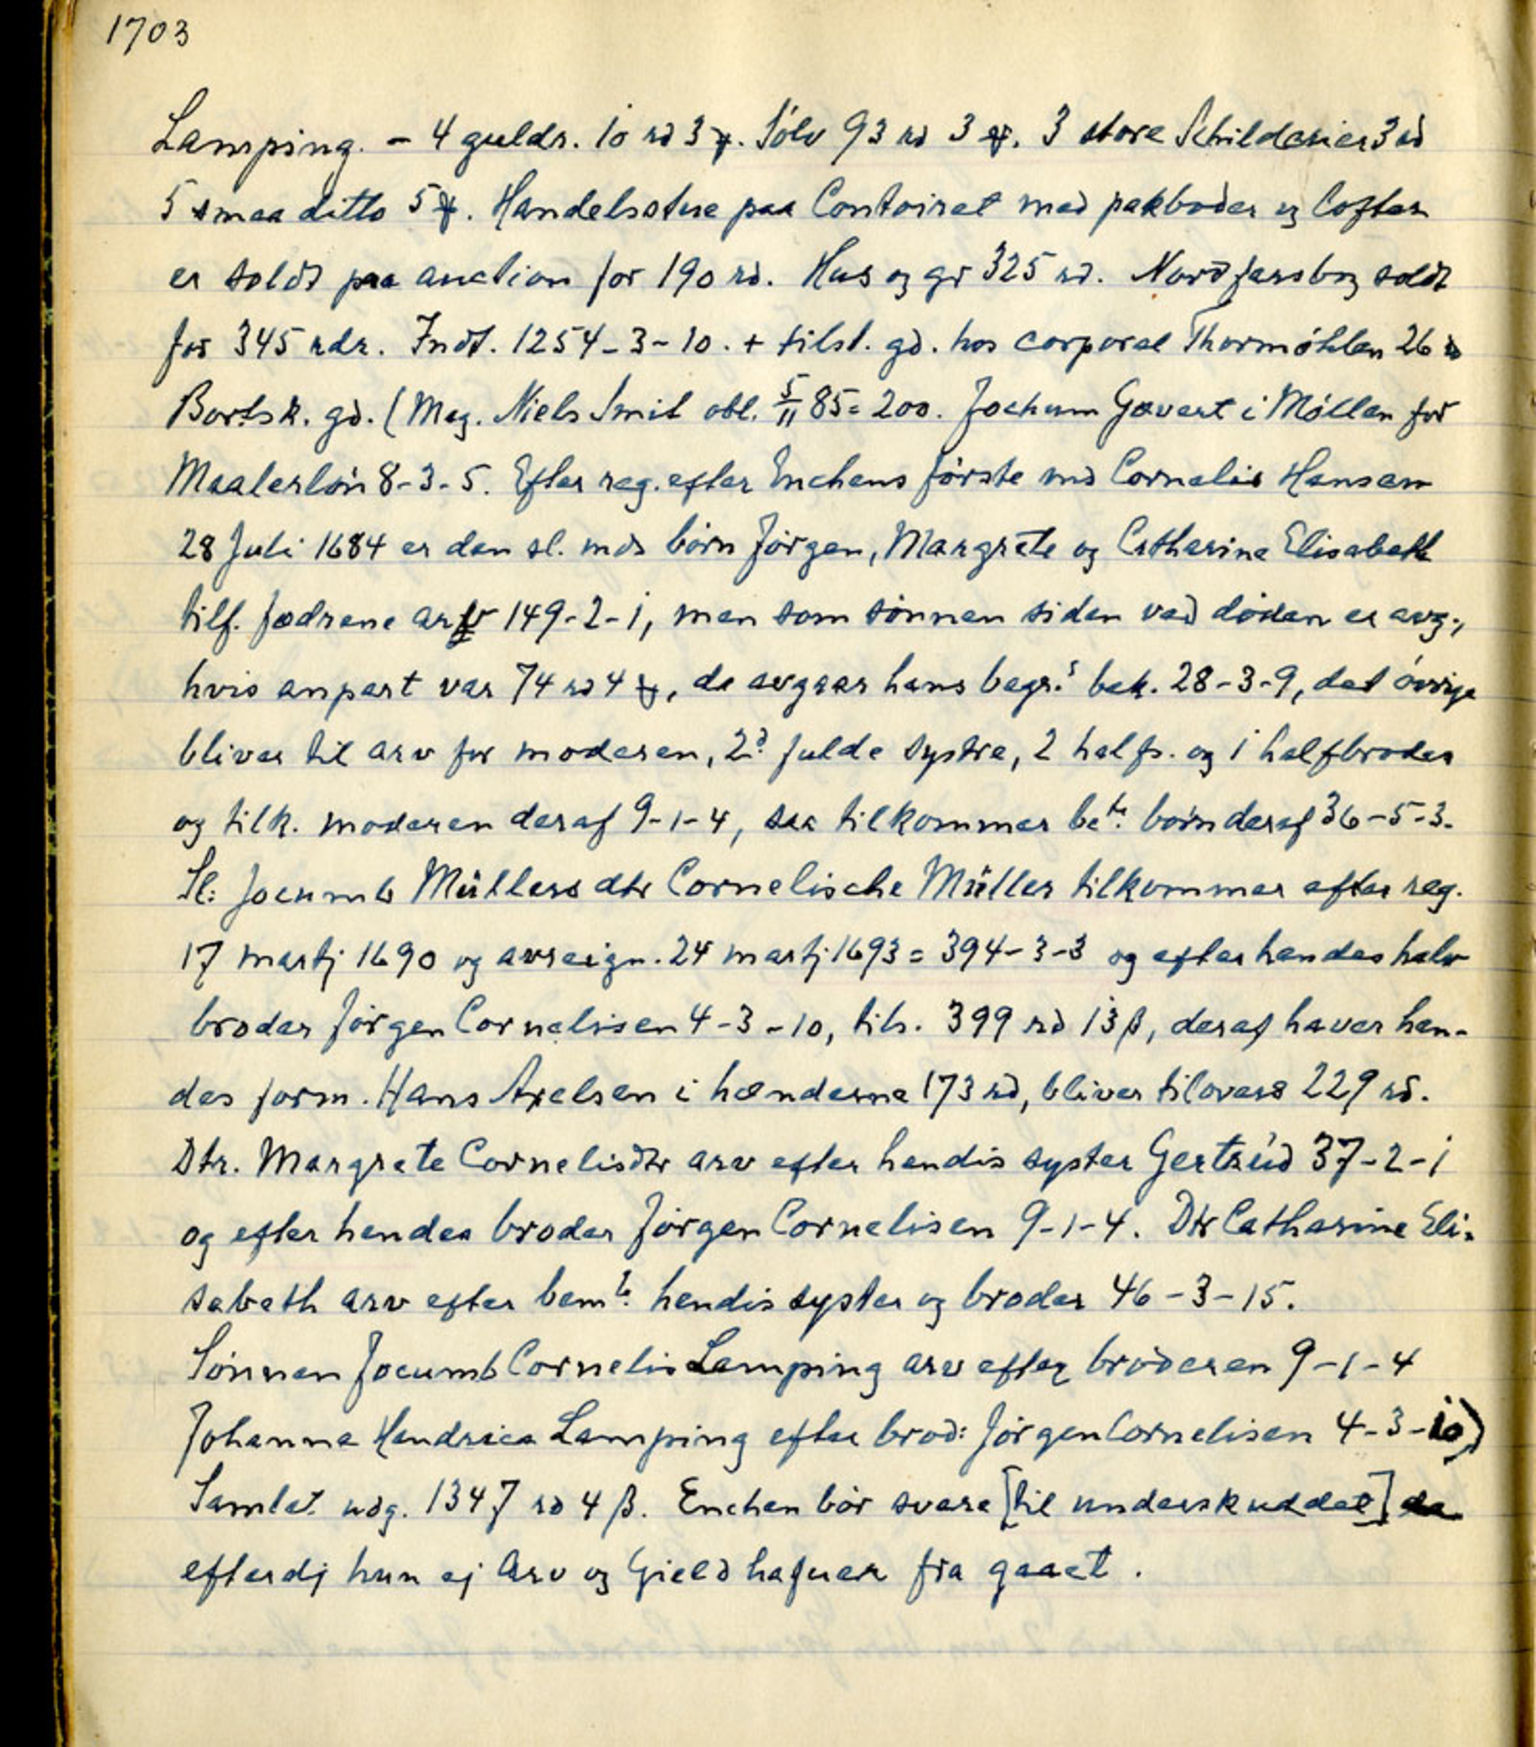 1703
Lamping. - 4 guldr. 10 rd 3 ꝟ. Sölv 93 rd 3 ꝟ. 3 store Schilderier 3 rd
5 smaa ditto 5 ꝟ. Handelsstue paa Contoiret med pakboder og Lofter
er soldt paa auction for 190 rd. Hus og gr 325 rd. Nordfarsbog soldt
for 345 rdr. Indt. 1254-3-10. + tilst. gd. hos corporal Thormöhlen 26 rd
Bortsk. gd. (Mag. Niels Smit obl. 5/11 85 = 200. Jochum Gævert i Möllen for
Maalerlön 8-3-5. Efter reg. efter Enchens förste md Cornelis Hansen
28 Juli 1684 er den sl. mds börn Jörgen, Margrete og Catharina Elisabeth
tilf. fædrene arfv 149-2-1, men som sönnen siden ved döden er avg.,
hvis anpart var 74 rd 4 ꝟ, da avgaar hans begr.s bek. 28-3-9, det övrige
bliver til arv for moderen, 2d fulde systre, 2 halfs. og 1 halfbroder
og tilk. moderen deraf 9-1-4, saa tilkommer bete börn deraf 36-5-3.
Sl: Jocumb Müllers dtr Cornelische Müller tilkommer efter reg.
17 martj 1690 og avreign. 24 martj 1693 = 394-3-3 og efter hendes halv
broder Jörgen Cornelisen 4-3-10, tils. 399 rd 13 β, deraf haver hen-
des form. Hans Axelsen i hænderne 173 rd, bliver tilovers 229 rd.
Dtr. Margrete Cornelisdtr arv efter hendis syster Gertrud 37-2-1
og efter hendes broder Jörgen Cornelisen 9-1-4. Dtr Catharine Eli-
sabeth arv efter bemte hendis syster og broder 46-3-15.
Sönnen Jocumb Cornelis Lamping arv efter broderen 9-1-4
Johanna Hendrica Lamping efter brod: Jörgen Cornelisen 4-3-10)
Samlet udg. 1347 rd 4 β. Enchen bör svare [til underskuddet]
efterdj hun ej Arv og Gield hafuer fra gaaet.